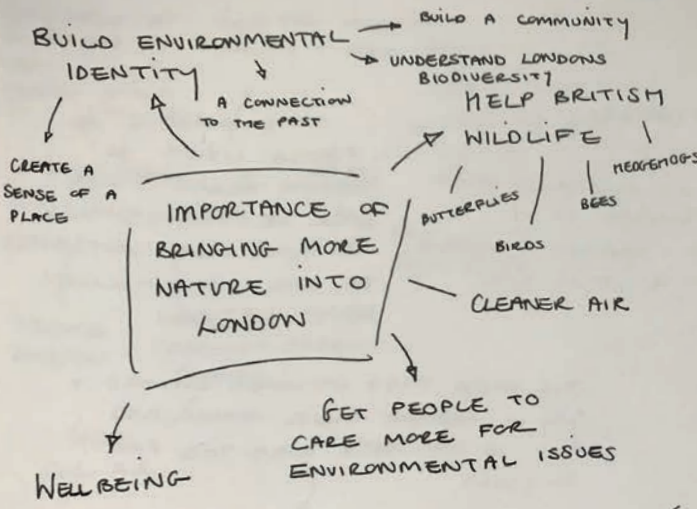 BUILD ENVIRONMENTAL
IDENTITY
BUILD A COMMUNITY
UNDERSTAND LONDONS
BIODIVERSITY
A CONNECTION
TO THE PAST
CREATE A
SENSE OF A
PLACE
HELP BRITISH
WILDLIFE
BUTTERFLIES
BIRDS
BEES
HEDGEHOGS
IMPORTANCE OF
BRINGING MORE
NATURE INTO
LONDON
CLEANER AIR
GET PEOPLE TO
CARE MORE FOR
ENVIRONMENTAL ISSUES
WELLBEING